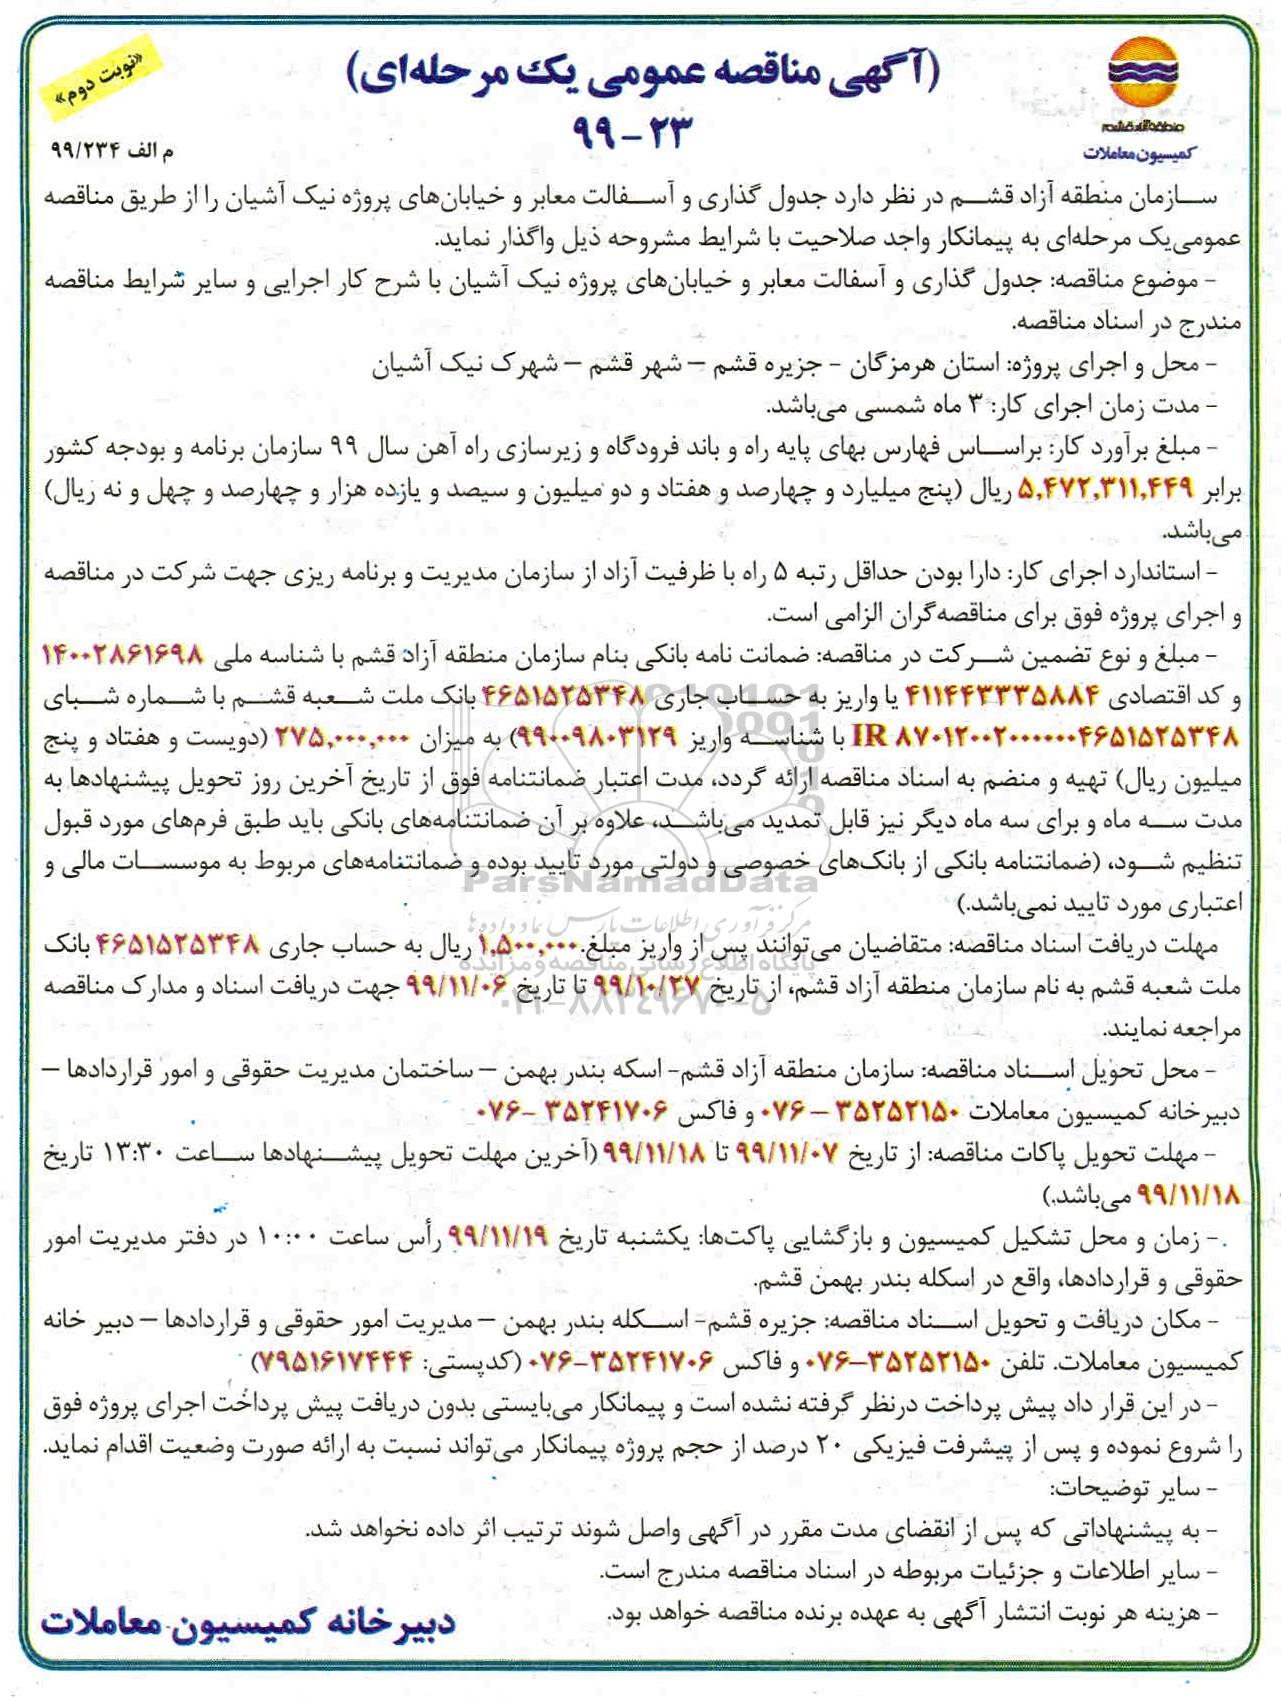 «نوبت دوم»
(آگهی مناقصه عمومی یک مرحله‌ای)
۲۳-۹۹
منطقه آزاد قشم
کمیسیون معاملات
م الف ۹۹/۲۳۴
سازمان منطقه آزاد قشم در نظر دارد جدول گذاری و آسفالت معابر و خیابان‌های پروژه نیک آشیان را از طریق مناقصه
عمومی‌یک مرحله‌ای به پیمانکار واجد صلاحیت با شرایط مشروحه ذیل واگذار نماید.
- موضوع مناقصه: جدول گذاری و آسفالت معابر و خیابان‌های پروژه نیک آشیان با شرح کار اجرایی و سایر شرایط مناقصه
مندرج در اسناد مناقصه.
- محل و اجرای پروژه: استان هرمزگان - جزیره قشم – شهر قشم – شهرک نیک آشیان
- مدت زمان اجرای کار: ۳ ماه شمسی می‌باشد.
- مبلغ برآورد کار: براساس فهارس بهای پایه راه و باند فرودگاه و زیرسازی راه آهن سال ۹۹ سازمان برنامه و بودجه کشور
برابر ۵,۴۷۲,۳۱۱,۴۴۹ ریال (پنج میلیارد و چهارصد و هفتاد و دو میلیون و سیصد و یازده هزار و چهارصد و چهل و نه ریال)
می‌باشد.
- استاندارد اجرای کار: دارا بودن حداقل رتبه ۵ راه با ظرفیت آزاد از سازمان مدیریت و برنامه ریزی جهت شرکت در مناقصه
و اجرای پروژه فوق برای مناقصه‌گران الزامی است.
- مبلغ و نوع تضمین شرکت در مناقصه: ضمانت نامه بانکی بنام سازمان منطقه آزاد قشم با شناسه ملی ۱۴۰۰۲۸۶۱۶۹۸
و کد اقتصادی ۴۱۱۴۴۳۳۳۵۸۸۴ یا واریز به حساب جاری ۴۶۵۱۵۲۵۳۴۸ بانک ملت شعبه قشم با شماره شبای
IR ۸۷۰۱۲۰۰۲۰۰۰۰۰۰۴۶۵۱۵۲۵۳۴۸ با شناسه واریز ۹۹۰۰۹۸۰۳۱۲۹) به میزان ۲۷۵,۰۰۰,۰۰۰ (دویست و هفتاد و پنج
میلیون ریال) تهیه و منضم به اسناد مناقصه ارائه گردد، مدت اعتبار ضمانتنامه فوق از تاریخ آخرین روز تحویل پیشنهادها به
مدت سه ماه و برای سه ماه دیگر نیز قابل تمدید می‌باشد، علاوه بر آن ضمانتنامه‌های بانکی باید طبق فرم‌های مورد قبول
تنظیم شود، (ضمانتنامه بانکی از بانک‌های خصوصی و دولتی مورد تایید بوده و ضمانتنامه‌های مربوط به موسسات مالی و
اعتباری مورد تایید نمی‌باشد.)
ParsNamadData
مرکز فرآوری اطلاعات پارس نماد داده‌ها
مهلت دریافت اسناد مناقصه: متقاضیان می‌توانند پس از واریز مبلغ ۱,۵۰۰,۰۰۰ ریال به حساب جاری ۴۶۵۱۵۲۵۳۴۸ بانک
پایگاه اطلاع رسانی مناقصه و مزایده
ملت شعبه قشم به نام سازمان منطقه آزاد قشم، از تاریخ ۹۹/۱۰/۲۷ تا تاریخ ۹۹/۱۱/۰۶ جهت دریافت اسناد و مدارک مناقصه
۰۲۱-۸۸۳۴۹۶۷۰-۵
مراجعه نمایند.
- محل تحویل اسناد مناقصه: سازمان منطقه آزاد قشم- اسکه بندر بهمن – ساختمان مدیریت حقوقی و امور قراردادها –
دبیرخانه کمیسیون معاملات ۳۵۲۵۲۱۵۰ – ۰۷۶ و فاکس ۳۵۲۴۱۷۰۶ -۰۷۶
- مهلت تحویل پاکات مناقصه: از تاریخ ۹۹/۱۱/۰۷ تا ۹۹/۱۱/۱۸ (آخرین مهلت تحویل پیشنهادها ساعت ۱۳:۳۰ تاریخ
۹۹/۱۱/۱۸ می‌باشد.)
- زمان و محل تشکیل کمیسیون و بازگشایی پاکت‌ها: یکشنبه تاریخ ۹۹/۱۱/۱۹ رأس ساعت ۱۰:۰۰ در دفتر مدیریت امور
حقوقی و قراردادها، واقع در اسکله بندر بهمن قشم.
- مکان دریافت و تحویل اسناد مناقصه: جزیره قشم- اسکله بندر بهمن – مدیریت امور حقوقی و قراردادها – دبیر خانه
کمیسیون معاملات. تلفن ۳۵۲۵۲۱۵۰–۰۷۶ و فاکس ۳۵۲۴۱۷۰۶-۰۷۶ (کدپستی: ۷۹۵۱۶۱۷۴۴۴)
- در این قرار داد پیش پرداخت درنظر گرفته نشده است و پیمانکار می‌بایستی بدون دریافت پیش پرداخت اجرای پروژه فوق
را شروع نموده و پس از پیشرفت فیزیکی ۲۰ درصد از حجم پروژه پیمانکار می‌تواند نسبت به ارائه صورت وضعیت اقدام نماید.
- سایر توضیحات:
- به پیشنهاداتی که پس از انقضای مدت مقرر در آگهی واصل شوند ترتیب اثر داده نخواهد شد.
- سایر اطلاعات و جزئیات مربوطه در اسناد مناقصه مندرج است.
- هزینه هر نوبت انتشار آگهی به عهده برنده مناقصه خواهد بود.
دبیرخانه کمیسیون معاملات